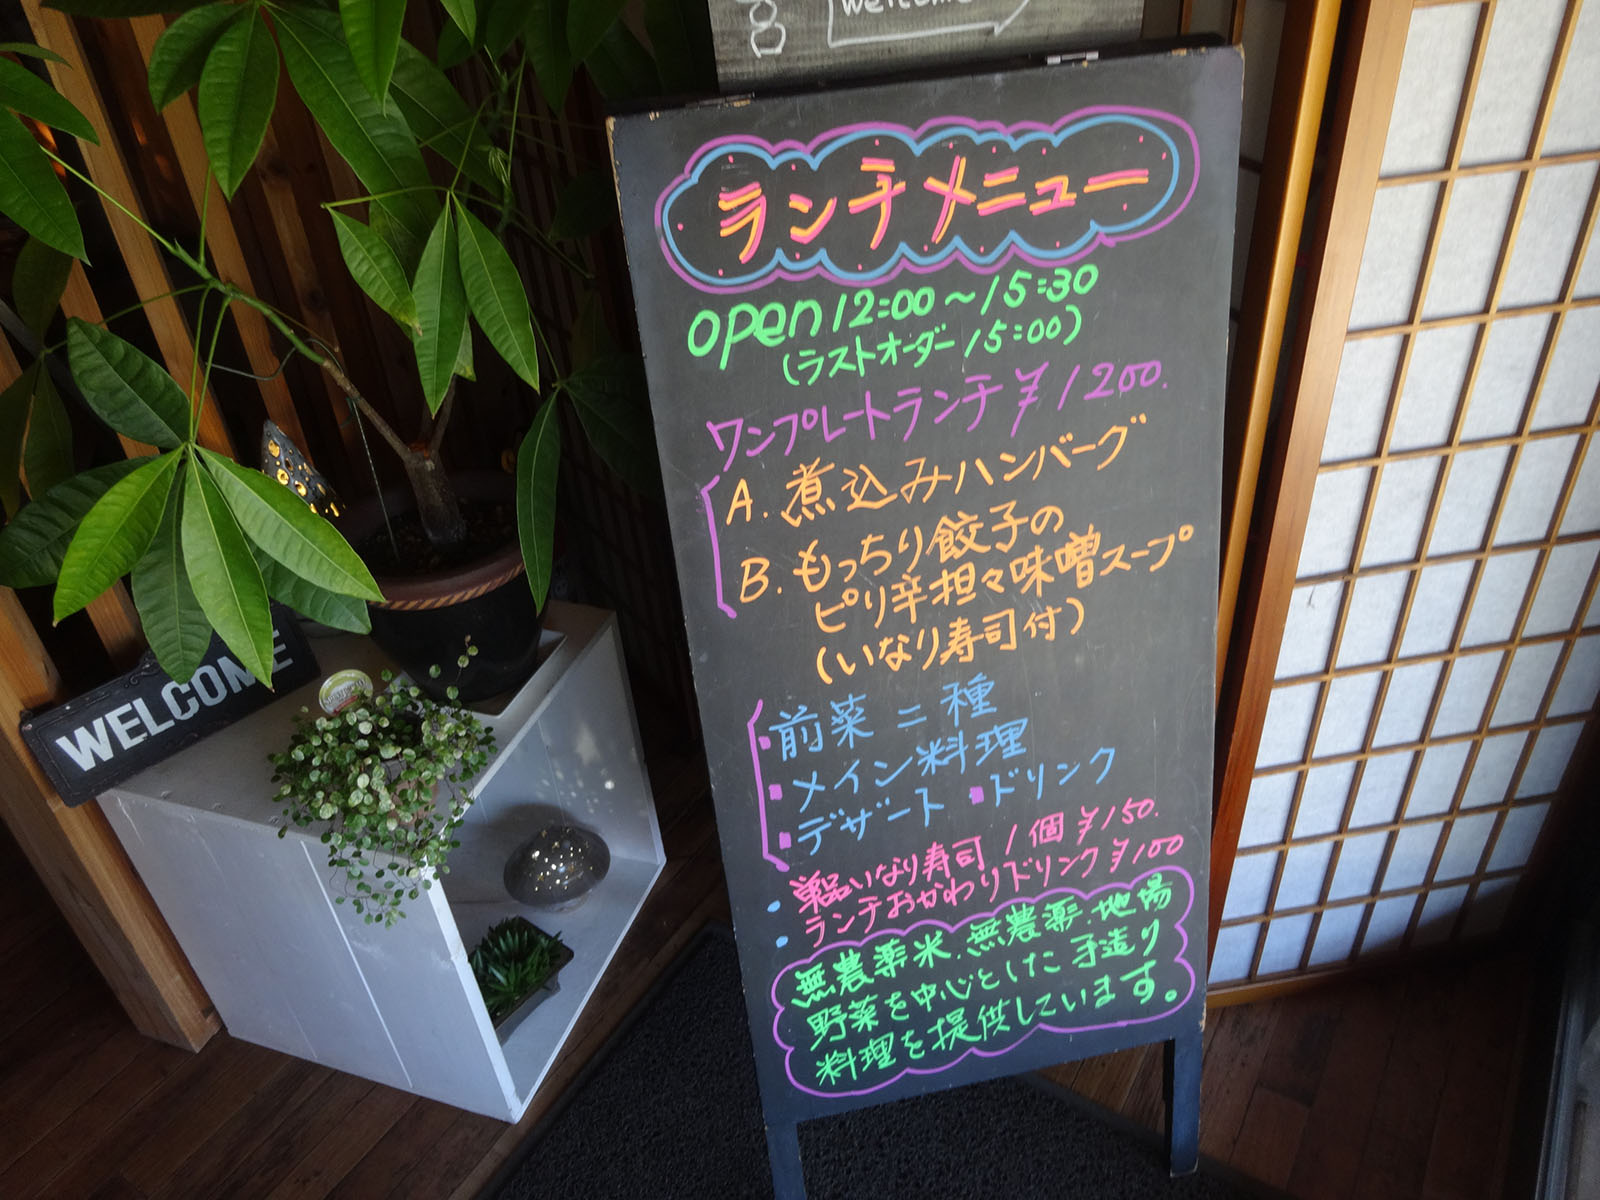 Welcome
ランチメニュー
open 12:00〜15:30
(ラストオーダー 15:00)
ワンプレートランチ ¥1200.
A. 煮込みハンバーグ
B. もっちり餃子の
ピリ辛担々味噌スープ
(いなり寿司付)
・前菜二種
・メイン料理
・デザート ・ドリンク
・単品いなり寿司 1個 ¥150.
・ランチおかわりドリンク ¥100
無農薬米、無農薬・地場
野菜を中心とした手造り
料理を提供しています。
WELCOME